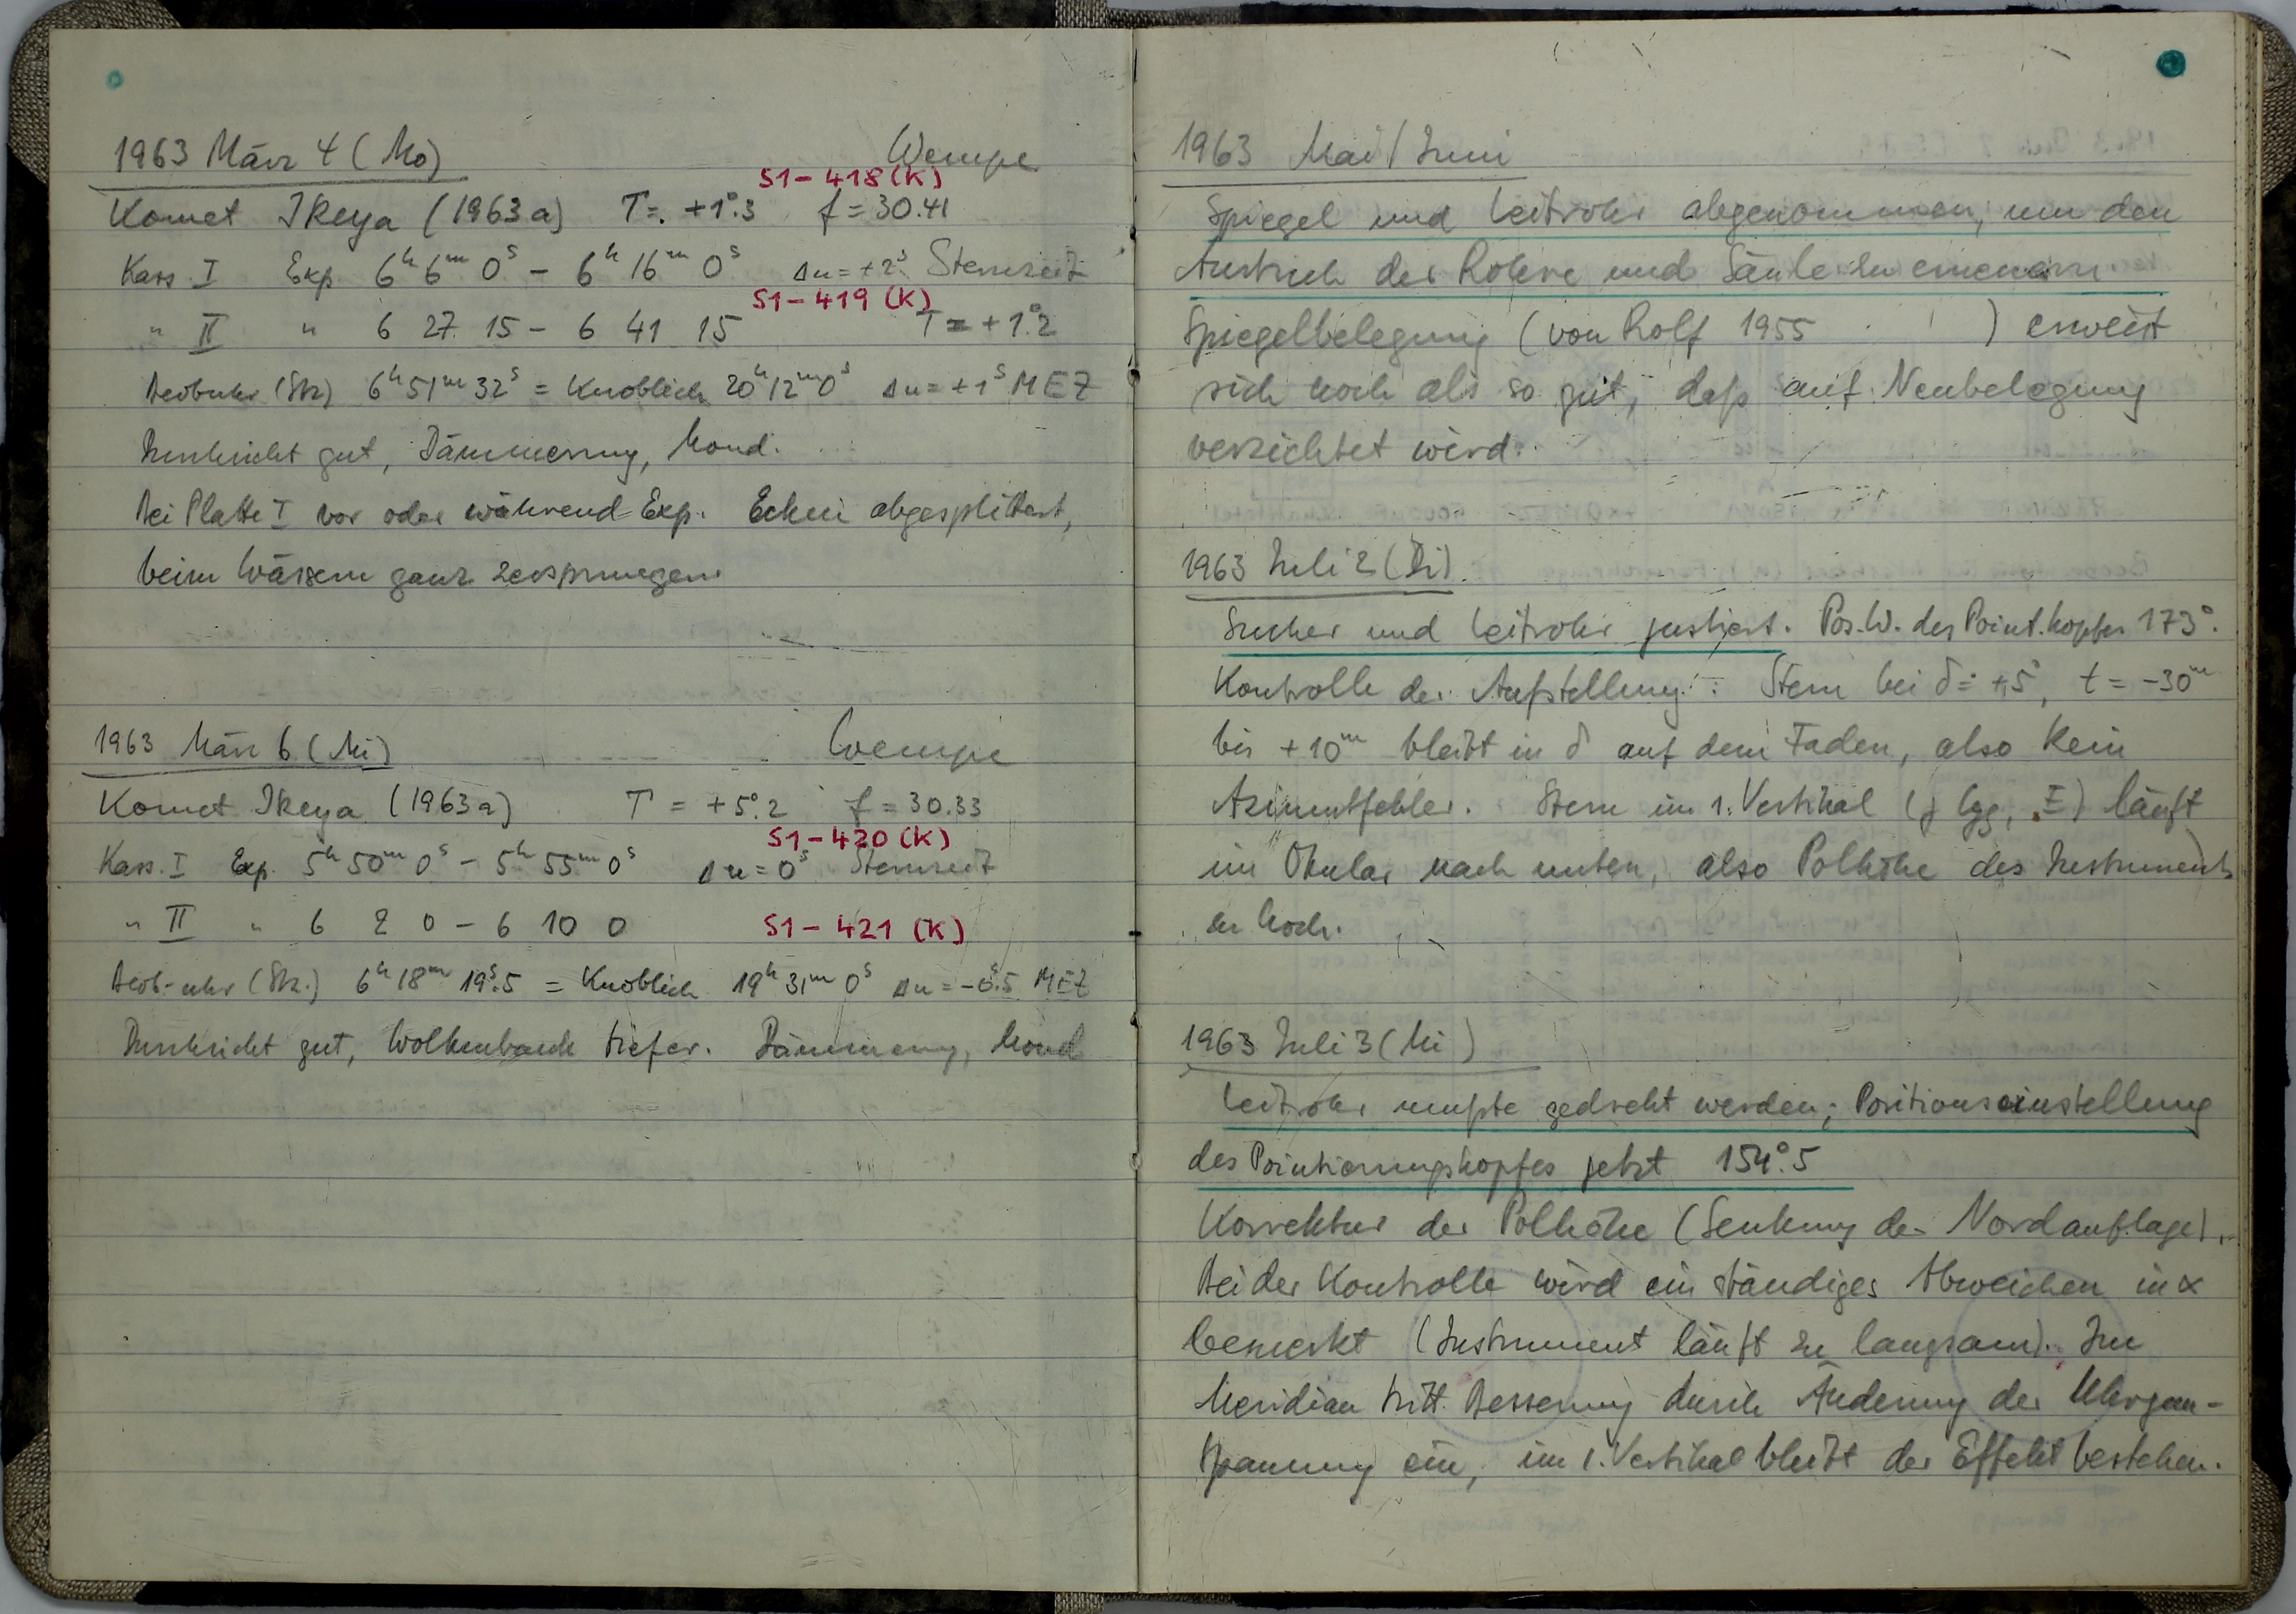 1963 März 4 (Mo) Wempe
S1-418(K)
Komet Ikeya (1963a) T = +1°.3 f = 30.41
Kass. I Exp. 6h 6m 0s - 6h 16m 0s Δu = +2s Sternzeit
S1-419 (K)
" II " 6 27 15 - 6 41 15 T = +1°.2
Beobuhr (Stz) 6h51m32s = Knoblich 20h12m0s Δu = +1s MEZ
Durchsicht gut, Dämmerung, Mond.
Bei Platte I vor oder während Exp. Ecken abgesplittert,
beim Wässern ganz zersprungen
1963 März 6 (Mi) Wempe
Komet Ikeya (1963a) T = +5°.2 f = 30.33
S1-420 (K)
Kass. I Exp. 5h 50m 0s - 5h 55m 0s Δu = 0s Sternzeit
" II " 6 2 0 - 6 10 0 S1-421 (K)
Beob-uhr (Stz.) 6h 18m 19s.5 = Knoblich 19h 31m 0s Δu = -0s.5 MEZ
Durchsicht gut, Wolkenbank tiefer. Dämmerung, Mond
1963 Mai/Juni
Spiegel und Leitrohr abgenommen, um den
Anstrich der Rohre und Säule zu erneuern.
Spiegelbelegung (von Rolf 1955 ) erweist
sich noch als so gut, daß auf Neubelegung
verzichtet wird.
1963 Juli 2 (Di).
Sucher und Leitrohr justiert. Pos.W. des Point.kopfes 173°.
Kontrolle der Aufstellung: Stern bei δ = +5°, t = -30m
bis +10m bleibt in δ auf dem Faden, also kein
Azimutfehler. Stern im 1. Vertikal (γ Cyg, E) läuft
im Okular nach unten, also Polhöhe des Instruments
zu hoch.
1963 Juli 3 (Mi)
Leitrohr mußte gedreht werden; Positionseinstellung
des Pointierungskopfes jetzt 154°.5
Korrektur der Polhöhe (Senkung der Nordauflage).
Bei der Kontrolle wird ein ständiges Abweichen in α
bemerkt (Instrument läuft zu langsam). Im
Meridian tritt Besserung durch Änderung der
Spannung ein, im 1. Vertikal bleibt der Effekt bestehen.